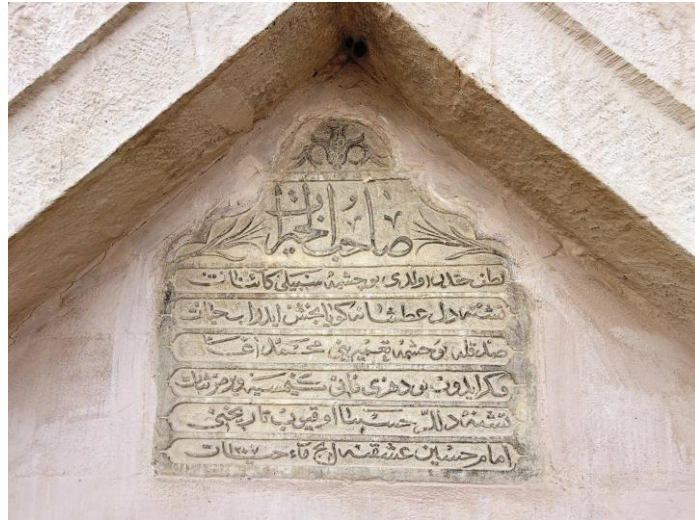 صاحب الخيرات
لطف حقله اولدى بو چشمه سبيلى كائنات
تشنه دل عطشانه كويا بخش ايدر آب حيات
صدقله بو چشمه تعميرينى محمد اغا
فكر ايدوب بو دهرى فانى كيمسيه ويرمز ثبات
تشنه دللر حسبنا اوقيوب تاريخنى
امام حسين عشقنه ايچ ماء حيات